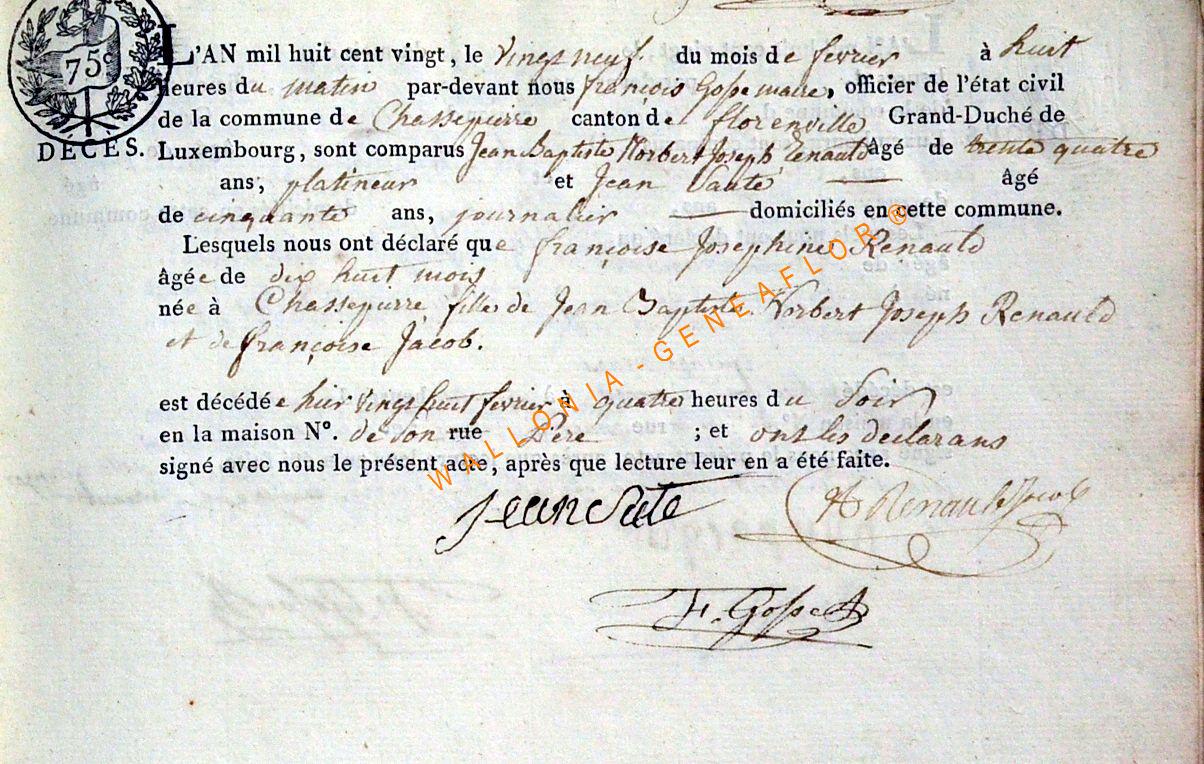 75c
L'AN mil huit cent vingt, le vingt neuf du mois de fevrier à huit
heures du matin par-devant nous françois Gosse maire, officier de l'état civil
de la commune de Chassepierre canton de florenville Grand-Duché de
DÉCÈS. Luxembourg, sont comparus Jean Baptiste Norbert Joseph Renauld âgé de trente quatre
ans, platineur et Jean Sauté âgé
de cinquante ans, journalier domiciliés en cette commune.
Lesquels nous ont déclaré que françoise Josephine Renauld
âgée de dix huit mois
née à Chassepierre fille de Jean Baptiste Norbert Joseph Renauld
et de françoise Jacob.
est décédée hier vingt huit fevrier à quatre heures du Soir
en la maison N°. de son rue Père ; et ont les declarans
signé avec nous le présent acte, après que lecture leur en a été faite.
Jean Saté Renauld Jacob
F. Gosse
WALLONIA - GENEAFLOR ®